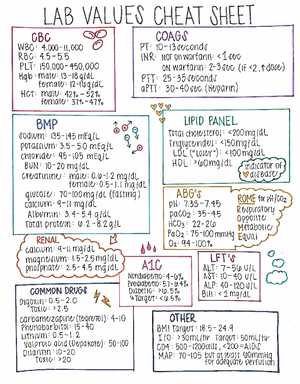 LAB VALUES CHEAT SHEET
CBC
WBC: 4,000-11,000
RBC: 4.5-5.5
PLT: 150,000-450,000
Hgb: male: 13-18g/dL
female: 12-16g/dL
Hct: male: 42% - 52%
female: 37% - 47%
COAGS
PT: 10-13 seconds
INR: Not on warfarin: <1 sec
on warfarin: 2-3 sec (if <2, ↑ dose)
PTT: 25-35 seconds
aPTT: 30-40 sec. (Heparin)
BMP
sodium: 135-145 mEq/L
potassium: 3.5-5.0 mEq/L
chloride: 95-105 mEq/L
BUN: 10-20 mg/dL
creatinine: male: 0.6-1.2 mg/dL
female: 0.5-1.1 mg/dL
glucose: 70-100mg/dL (fasting)
calcium: 9-11 mg/dL
Albumin: 3.4-5.4 g/dL
Total protein: 6.2-8.2g/L
LIPID PANEL
Total cholesterol: <200mg/dL
Triglycerides: <150mg/dL
LDL ("Loser"): <100mg/dL
HDL: >60mg/dL
indicator of
disease
ABG's
pH: 7.35-7.45
paCO2: 35-45
HCO3: 22-26
PaO2: 75-100mmHg
O2: 94-100%
ROME for pH/CO2
Respiratory
Opposite
Metabolic
Equal
RENAL
calcium: 9-11 mg/dL
magnesium: 1.5-2.5 mg/dL
phosphate: 2.5-4.5 mg/dL
A1C
Nondiabetic: 4-6%
Prediabetic: 5.7-6.4%
Diabetic: >6.5%
Target: <6.5%
LFT's
ALT: 7-56 u/L
AST: 10-40 u/L
ALP: 40-120 u/L
Bili: <1 mg/dL
COMMON DRUGS
Digoxin: 0.5-2.0
Toxic: >2.5
carbamazepine (tegretol): 4-10
Phenobarbitol: 15-40
Lithium: 0.5-1.2
Valproic acid (Depakote): 50-100
Dilantin: 10-20
Toxic: >20
OTHER
BMI Target: 18.5-24.9
I/O: >30ml/hr Target: 50ml/hr
CD4: 500-1200cells, <200 = AIDS
MAP: 70-105 but at least 60mmHg
for adequate perfusion